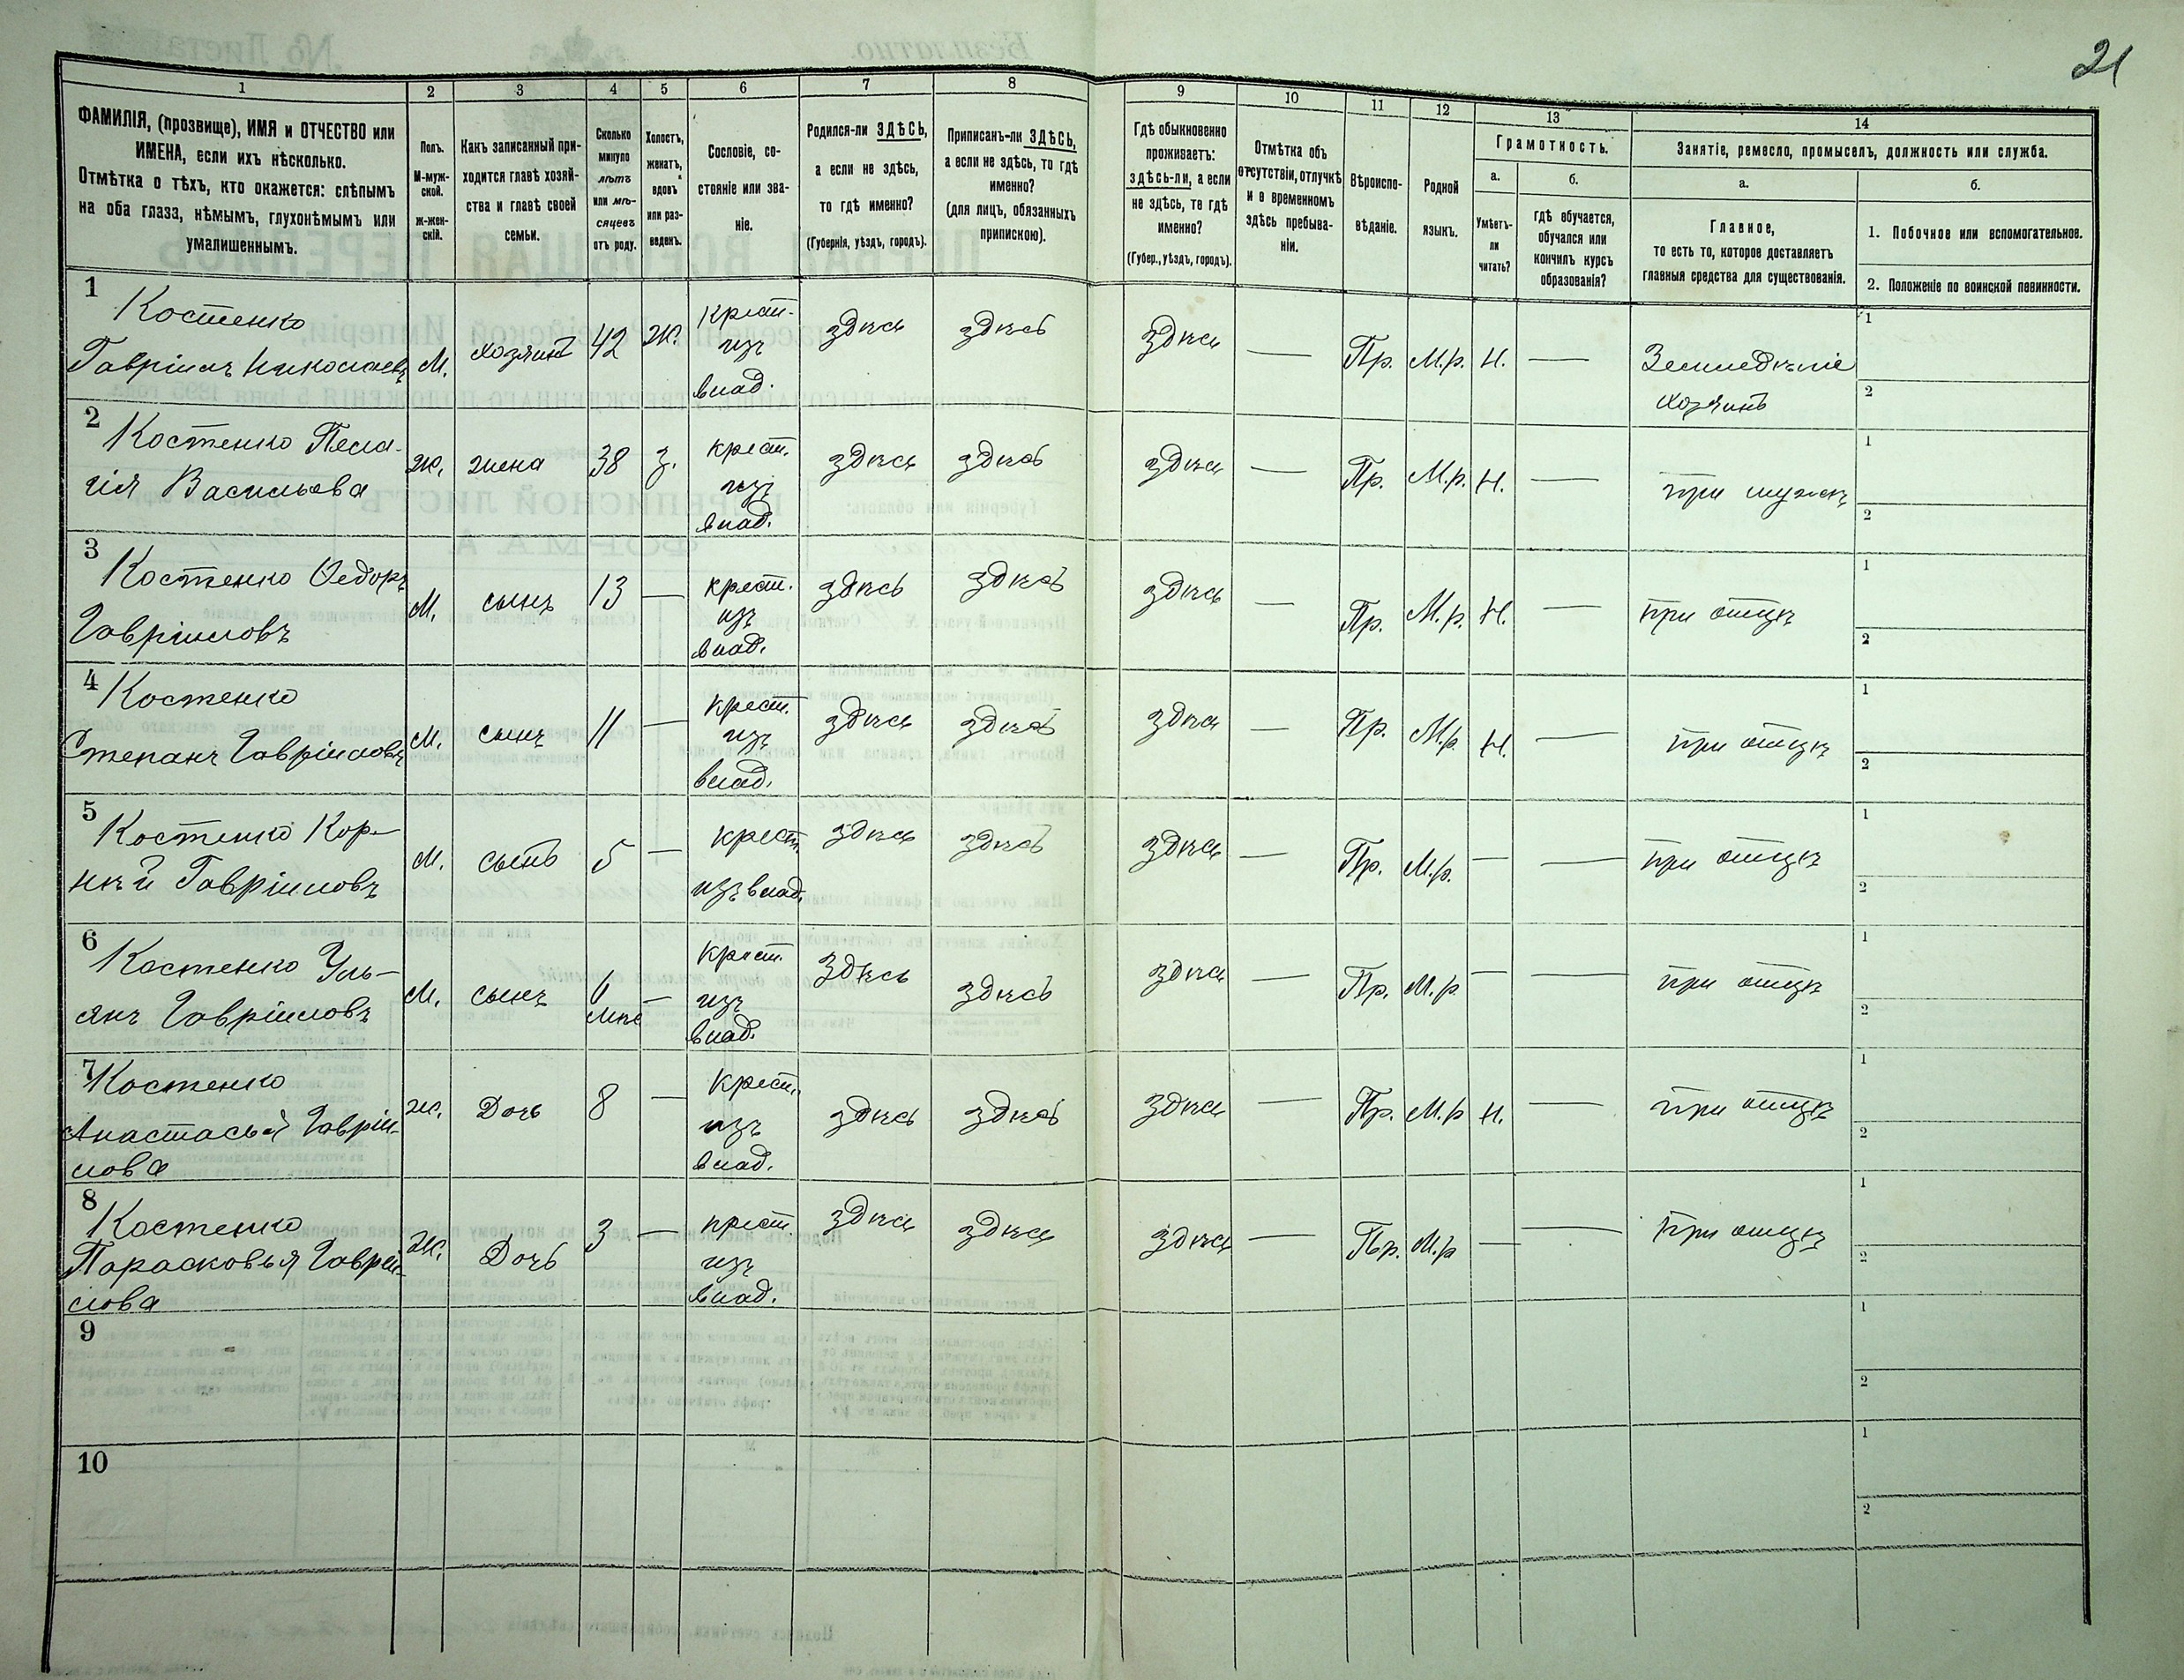 21
1 2 3 4 5 6 7 8 9 10 11 12 13 14
ФАМИЛІЯ, (прозвище), ИМЯ и ОТЧЕСТВО или
ИМЕНА, если ихъ нѣсколько.
Отмѣтка о тѣхъ, кто окажется: слѣпымъ
на оба глаза, нѣмымъ, глухонѣмымъ или
умалишеннымъ.
Полъ.
М-муж-
ской.
ж-жен-
скій.
Какъ записанный при-
ходится главѣ хозяй-
ства и главѣ своей
семьи.
Сколько
минуло
лѣтъ
или мѣ-
сяцевъ
отъ роду.
Холостъ,
женатъ,
вдовъ
или раз-
веденъ.
Сословіе, со-
стояніе или зва-
ніе.
Родился-ли ЗДѢСЬ,
а если не здѣсь,
то гдѣ именно?
(Губернія, уѣздъ, городъ).
Приписанъ-ли ЗДѢСЬ,
а если не здѣсь, то гдѣ
именно?
(для лицъ, обязанныхъ
припискою).
Гдѣ обыкновенно
проживаетъ:
здѣсь-ли, а если
не здѣсь, то гдѣ
именно?
(Губер., уѣздъ, городъ).
Отмѣтка объ
отсутствіи, отлучкѣ
и о временномъ
здѣсь пребыва-
ніи.
Вѣроиспо-
вѣданіе.
Родной
языкъ.
Грамотность.
а.
Умѣетъ-
ли
читать?
б.
гдѣ обучается,
обучался или
кончилъ курсъ
образованія?
Занятіе, ремесло, промыселъ, должность или служба.
а.
Главное,
то есть то, которое доставляетъ
главныя средства для существованія.
б.
1. Побочное или вспомогательное.
2. Положеніе по воинской повинности.
1
Костенко
Гавріилъ Николаевъ
М. хозяинъ 42 ж.
крест.
изъ
влад.
здѣсь здѣсь здѣсь — Пр. М.р. Н. —
Земледѣліе
хозяинъ
1
2
2
Костенко Пела-
гія Васильева
ж. жена 38 з.
крест.
изъ
влад.
здѣсь здѣсь здѣсь — Пр. М.р. Н. — при мужѣ
1
2
3
Костенко Ѳедоръ
Гавріиловъ
М. сынъ 13 —
крест.
изъ
влад.
здѣсь здѣсь здѣсь — Пр. М.р. Н. — при отцѣ
1
2
4
Костенко
Степанъ Гавріиловъ
М. сынъ 11 —
крест.
изъ
влад.
здѣсь здѣсь здѣсь — Пр. М.р. Н. — при отцѣ
1
2
5
Костенко Кор-
нѣй Гавріиловъ
М. сынъ 5 —
крест.
изъ влад.
здѣсь здѣсь здѣсь — Пр. М.р. — — при отцѣ
1
2
6
Костенко Уль-
янъ Гавріиловъ
М. сынъ 6
мѣс
—
крест.
изъ
влад.
здѣсь здѣсь здѣсь — Пр. М.р — — при отцѣ
1
2
7
Костенко
Анастасья Гаврiи-
лова
ж. Дочь 8 —
крест.
изъ
влад.
здѣсь здѣсь здѣсь — Пр. М.р Н. — при отцѣ
1
2
8
Костенко
Парасковья Гаврiи-
лова
ж. Дочь 3 —
крест
изъ
влад.
здѣсь здѣсь здѣсь — Пр. М.р — — при отцѣ
1
2
9
1
2
10
1
2